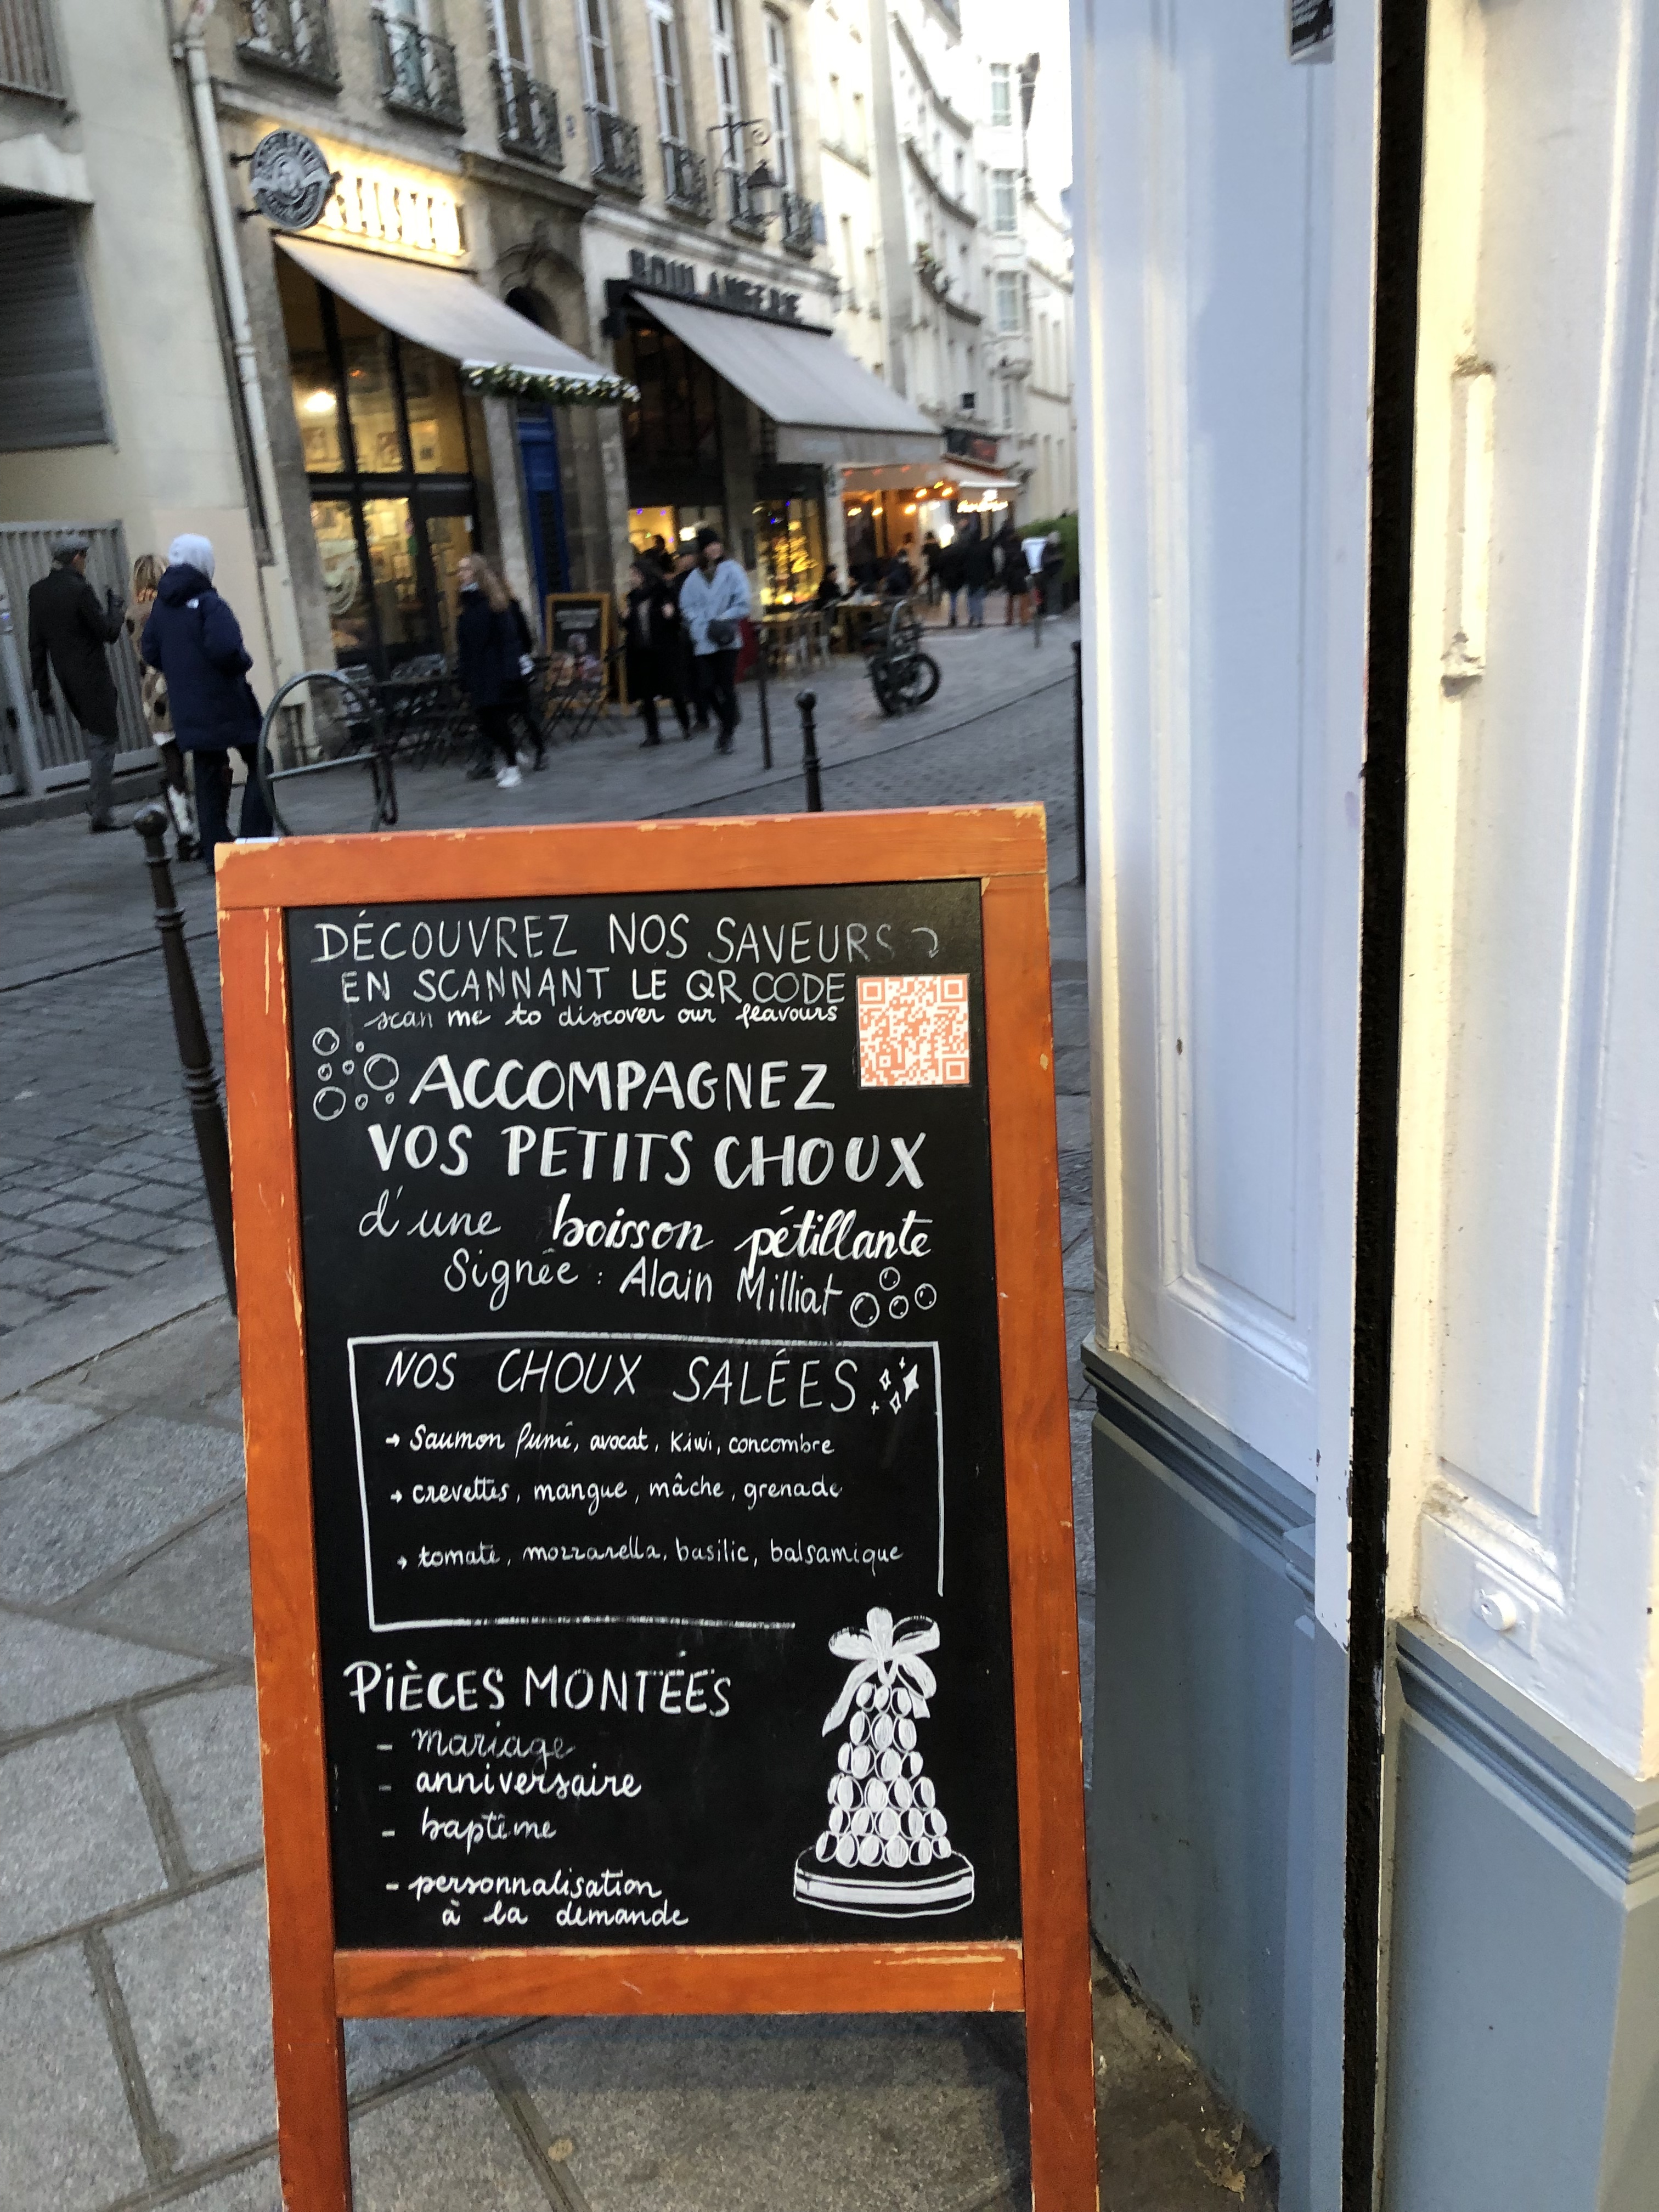 BOULANGERIE
DÉCOUVREZ NOS SAVEURS
EN SCANNANT LE QR CODE
scan me to discover our flavours
ACCOMPAGNEZ
VOS PETITS CHOUX
d'une boisson pétillante
Signée : Alain Milliat
NOS CHOUX SALÉES
→ Saumon fumé, avocat, kiwi, concombre
→ crevettes, mangue, mâche, grenade
→ tomate, mozzarella, basilic, balsamique
PIÈCES MONTÉES
- mariage
- anniversaire
- baptême
- personnalisation
à la demande